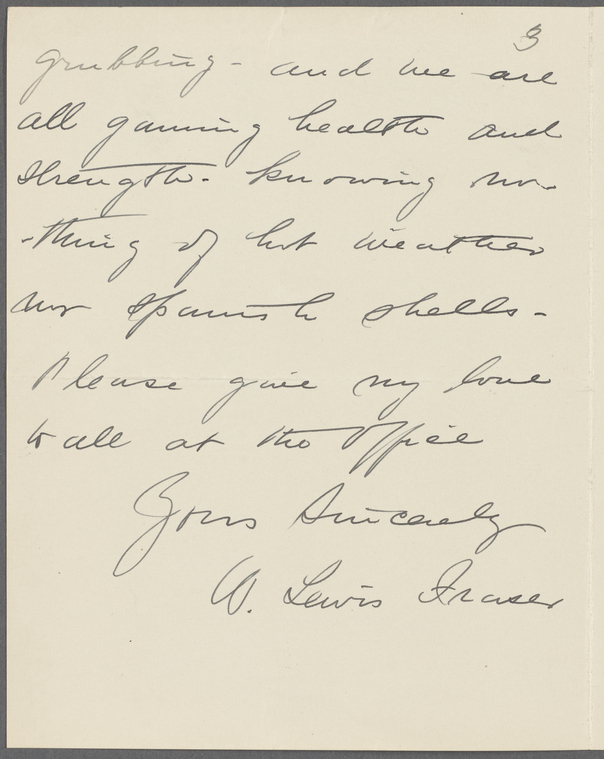 3
grubbing - and we are
all gaining health and
strength - knowing no-
-thing of hot weather
nor Spanish shells -
Please give my love
to all at the Office
Yours Sincerely
W. Lewis Fraser